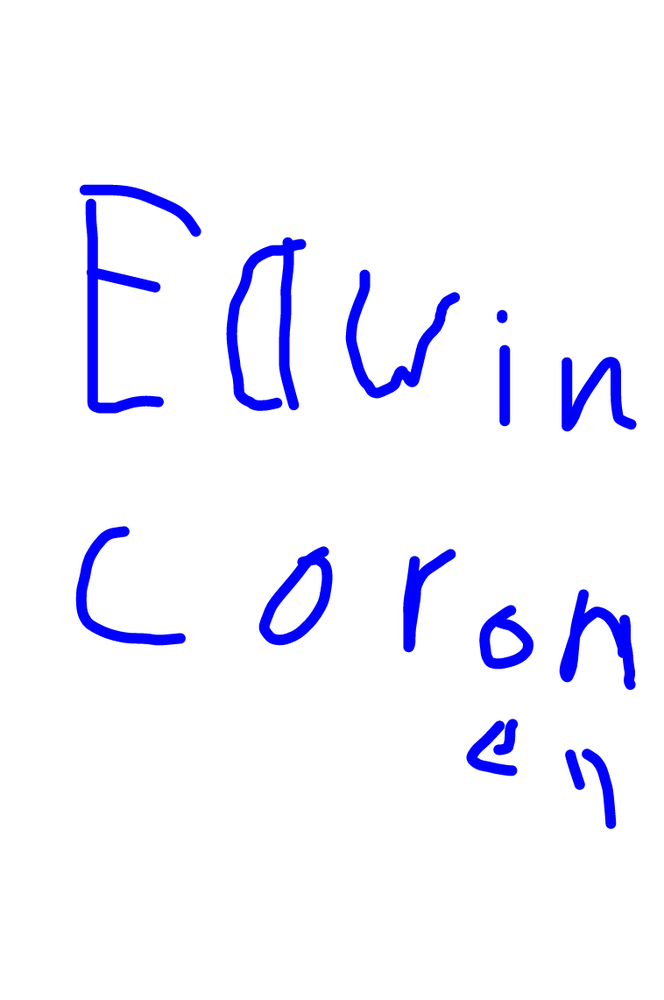 Edwin
Coron
en